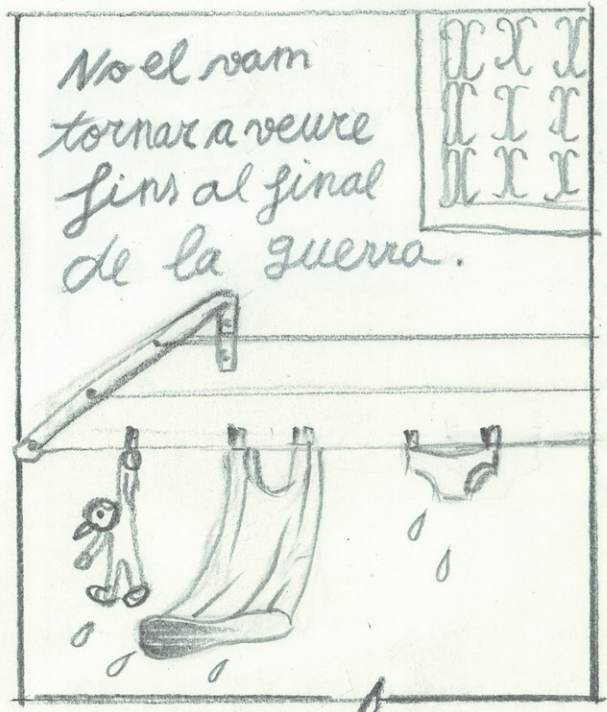 No el vam
tornar a veure
fins al final
de la guerra.